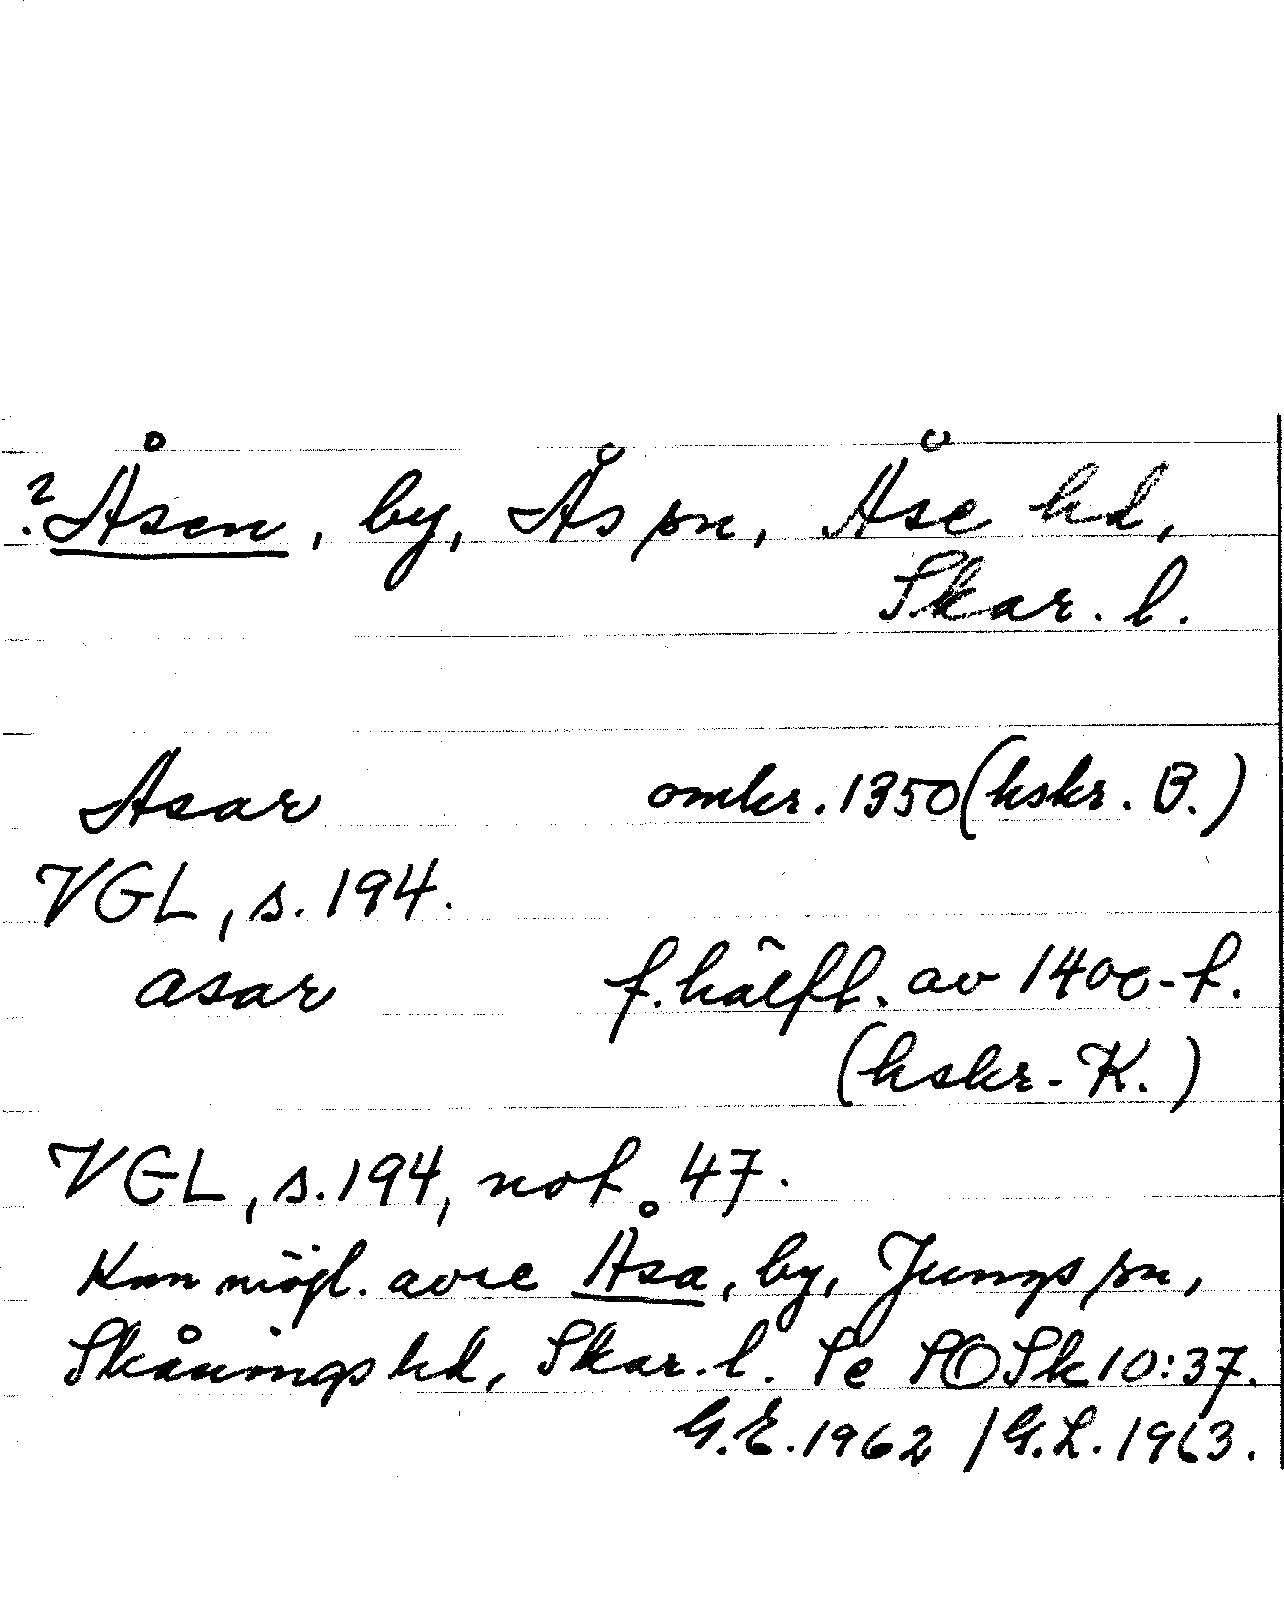 ? Åsen, by, Ås sn, Åse hd,
Skar. l.
Asar omkr. 1350 (hskr. B.)
VGL, s. 194.
asar f. hälft. av 1400-t.
(hskr. K.)
VGL, s. 194, not 47.
Kan möjl. avse Åsa, by, Jungs sn,
Skånings hd, Skar. l. Se SOSk 10:37.
G.E. 1962 / G.L. 1963.